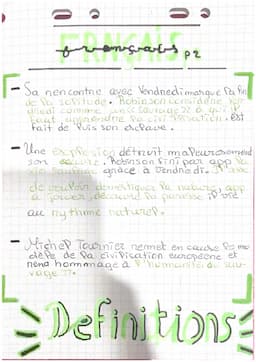 FRANÇAIS
français P2
- Sa rencontre avec Vendredi marque la fin
de la solitude. Robinson considère
comme un "sauvage" à qui il
faut apprendre la civilisation. est
fait de lui son esclave.
- Une explosion détruit malheureusement
son œuvre. Robinson fini par
grâce à Vendredi.
de vouloir domestiquer la nature, app
à jouer, découvre la paresse
au rythme naturel.
- Michel Tournier remet en cause le mo
dèle de la civilisation européene et
rend hommage à l'humanité du sau-
vage".
Definitions